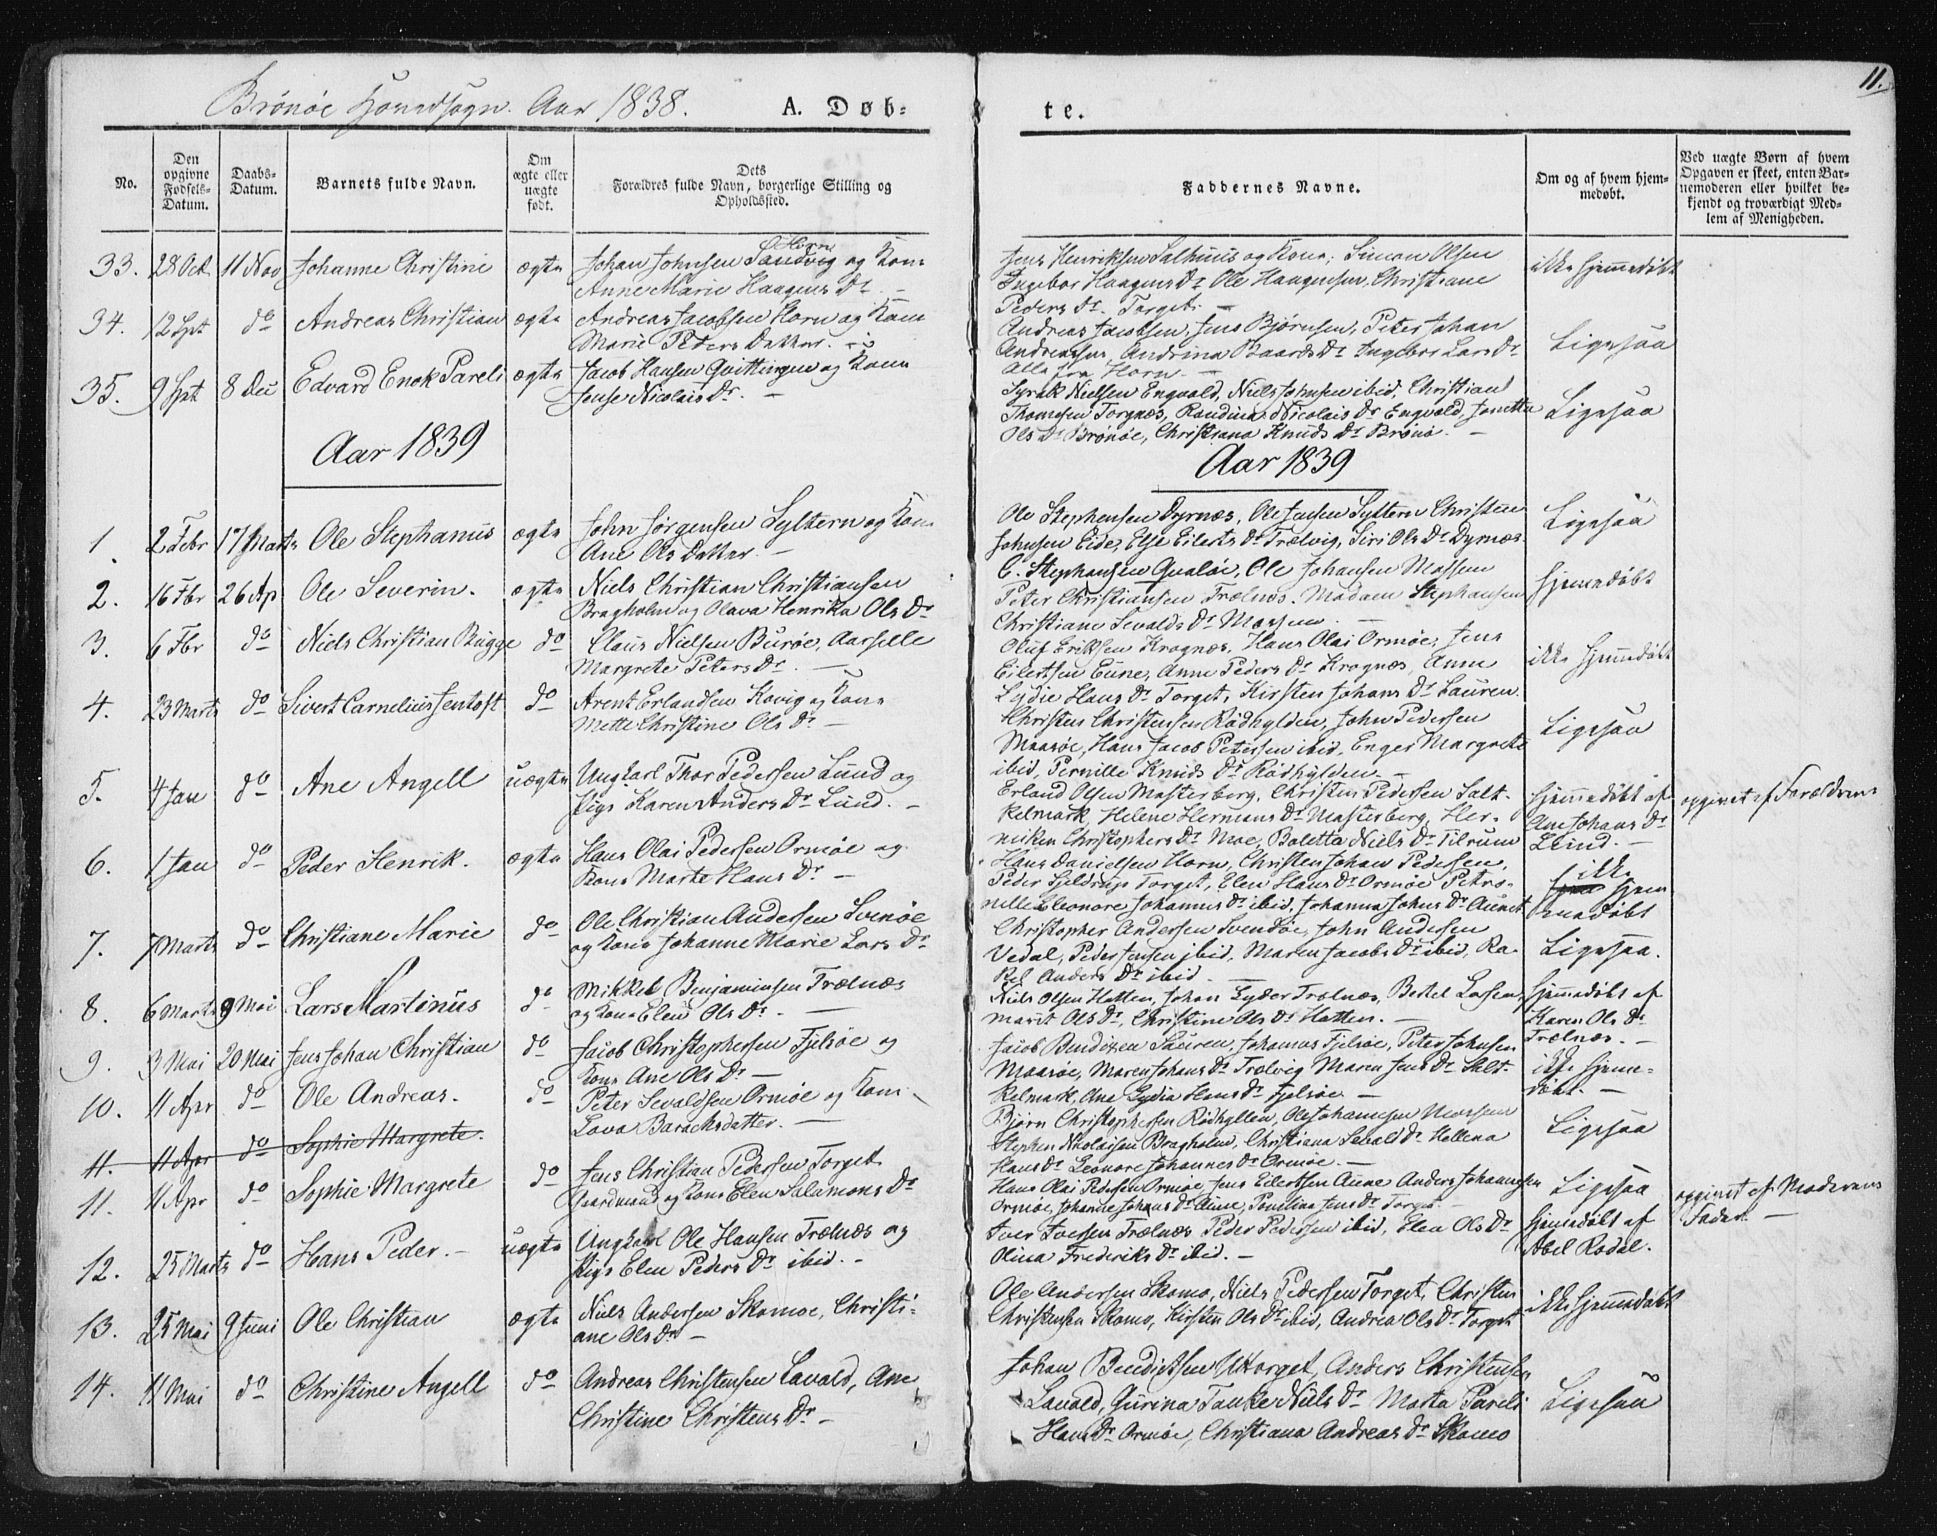 Brönöe Hovedsogn. Aar 1838.
A. Døb-
te.
11.
No.
Den opgivne Fødsels-Datum.
Daabs-Datum.
Barnets fulde Navn.
Om ægte eller uægte født.
Dets Forældres fulde Navn, borgerlige Stilling og Opholdssted.
Faddernes Navne.
Om og af hvem hjem-medøbt.
Ved uægte Børn af hvem Opgaven er skeet, enten Bar-nemoderen eller hvilket be-kjendt og troværdigt Med-lem af Menigheden.
33. 28 Oct. 11 Nov Johanne Christine ægte
Horn
Johan Johnsen Sandvig og Kone
Anne Marie Haagens Dr. –
Jens Henriksen Salhuus og Kone, Simon Olsen
Ingebor Haagens Dr Ole Haagensen, Christiane
Peders Dr. Torget. –
ikke hjemmedøbt
34. 12 Spt do Andreas Christian ægte
Andreas Jacobsen Horn og Kone
Marie Peders Datter. –
Andreas Jacobsen, Jens Bjørnsen, Peter Johan
Andreasen, Andrina Baards Dr Ingebor Lars Dr
Alle fra Horn. –
Ligesaa
35. 9 Spt 8 Dec Edvard Enok Pareli ægte
Jacob Hansen Qvittingen og Kone
Jense Nicolais Dr. –
Syrak Nielsen Engvold, Niels Johnsen ibid, Christian
Thomesen Torgnæs, Randina Nicolais Dr Engvold, Jonetta
Ols Dr Brönöe, Christiana Knuds Dr Brönö. –
Ligesaa
Aar 1839
Aar 1839
1. 2 Febr 17 Marts Ole Stephanus ægte
John Jörgensen Sylteren og Kone
Ane Ols Datter. –
Ole Stephensen Dyrnæs, Ole Jensen Sylteren Christen
Johnsen Eide, Else Eilerts Dr Trælvig, Siri Ols Dr Dyrnæs.
Ligesaa
2. 16 Fbr 26 Ap Ole Severin. ægte
Niels Christian Christiansen
Bragholm og Olava Henrika Ols Dr
C. Stephansen Qvaløe, Ole Johansen Mossem
Peter Christiansen Trælnæs. Madam Stephansen
Christiane Sevalds Dr Mossem. –
hjemmedøbt
3. 6 Fbr do Niels Christian Bugge do
Claus Nielsen Buröe, Aarselle
Margrete Peters Dr. –
Oluf Eriksen Krognæs, Hans Olai Ormöe, Jens
Eilertsen Eune, Anne Peders Dr Krognæs, Anne
Lydie Hans Dr Torget, Kirsten Johans Dr Sauren.
ikke hjemmedøbt
4. 23 Marts do Sivert Cornelius Jentoft do
Arent Erlandsen Kovig og Kone
Mette Christine Ols Dr –
Christen Christensen Rödhylden, John Pedersen
Maasöe, Hans Jacob Petersen ibid, Enger Margrete
ibid, Pernille Knuds Dr Rödhylden. –
Ligesaa
5. 4 Jan do Ane Angell uægte
Ungkarl Thor Pedersen Lund og
Pige Karen Anders Dr Lund. –
Erland Olsen Masterberg, Christen Pedersen Salt-
kelmark, Helene Hermans Dr Masterberg, Her-
niken Christophers Dr Moe, Boletta Niels Dr Tilrum
hjemmedøbt af
Ane Johans Dr
Lund. –
opgivet af Forældrene
6. 1 Jan do Peder Henrik. ægte
Hans Olai Pedersen Ormöe og
Kone Marte Hans Dr –
Hans Danielsen Horn, Christen Johan Pedersen,
Peder Hjeldrup Torget, Elen Hans Dr Ormöe Petro-
nelle Eleonore Johannes Dr ibid, Johanna Johns Dr Aunet
ikke
hjem
medøbt
7. 7 Marts do Christiane Marie do
Ole Christian Andersen Svenöe
og Kone Johanne Marie Lars Dr
Christopher Andersen Svendöe, John Andersen
Vedal, Peder Jensen ibid, Maren Jacobs Dr ibid, Ra-
kel Anders Dr ibid –
Ligesaa.
8. 6 Marts 9 Mai Lars Martinus do
Mikkel Benjaminsen Trælnæs
og Kone Elen Ols Dr. –
Niels Olsen Hatten, Johan Lyder Trælnæs, Bertel Larsen,
Marit Ols Dr, Christine Ols Dr Hatten. –
hjemmedøbt af
Karen Ols Dr
Trælnæs. –
9. 3 Mai 20 Mai Jens Johan Christian do
Jacob Christophersen Fjelsöe og
Kone Ane Ols Dr –
Jacob Bendixen Skuren, Johannes Fjelsöe, Peter Johnsen
Maasöe, Maren Johans Dr Trælvig Maren Jens Dr Salt-
kelmark, Ane Lydia Hans Dr Fjelsöe –
ikke hjemme-
døbt. –
10. 11 Apr do Ole Andreas. do
Peter Sevaldsen Ormöe og Kone
Lava Baraksdatter. –
Björn Christophersen Rödhyllen, Ole Johannesen Mossem
Stephen Nikolaisen Bragholm, Christiana Sevald Dr Hellena
Hans Dr Leonore Johannes Dr Ormöe. –
Ligesaa
11. 11 Apr do Sophie Margrete.
11. 11 Apr do Sophie Margrete do
Jens Christian Pedersen Torget
Gaardmand og Kone Elen Salamons Dr
Hans Olai Pedersen Ormöe, Jens Eilertsen Aune Anders Johannesen
Ormöe, Johanne Johans Dr Aune, Paulina Jens Dr Torget
Ligesaa
12. 25 Marts do Hans Peder. – uægte
Ungkarl Ole Hansen Trælnæs og
Pige Elen Peders Dr ibid. –
Iver Iversen Trælnæs Peder Pedersen ibid, Elen Ols Dr
Olina Frederiks Dr ibid. –
hjemmedøbt af
Abel Rodal.
opgivet af Moderens
Fader. –
13. 25 Mai 9 Juni Ole Christian ægte
Niels Andersen Skomoe, Christi-
ane Ols Dr –
Ole Andersen Skomo, Niels Pedersen Torget, Christen
Christensen Skomo, Kirsten Ols Dr ibid, Andrea Ols Dr Torget
ikke hjemmedøbt
14. 11 Mai do Christine Angell do
Andreas Christensen Lavold, Ane
Christine Christens Dr –
Johan Benedictsen Uttorget, Anders Christensen
Lavold, Gurina Tanke Niels Dr Marta Pareli
Hans Dr Ormöe, Christiana Andreas Dr Skomo
Ligesaa